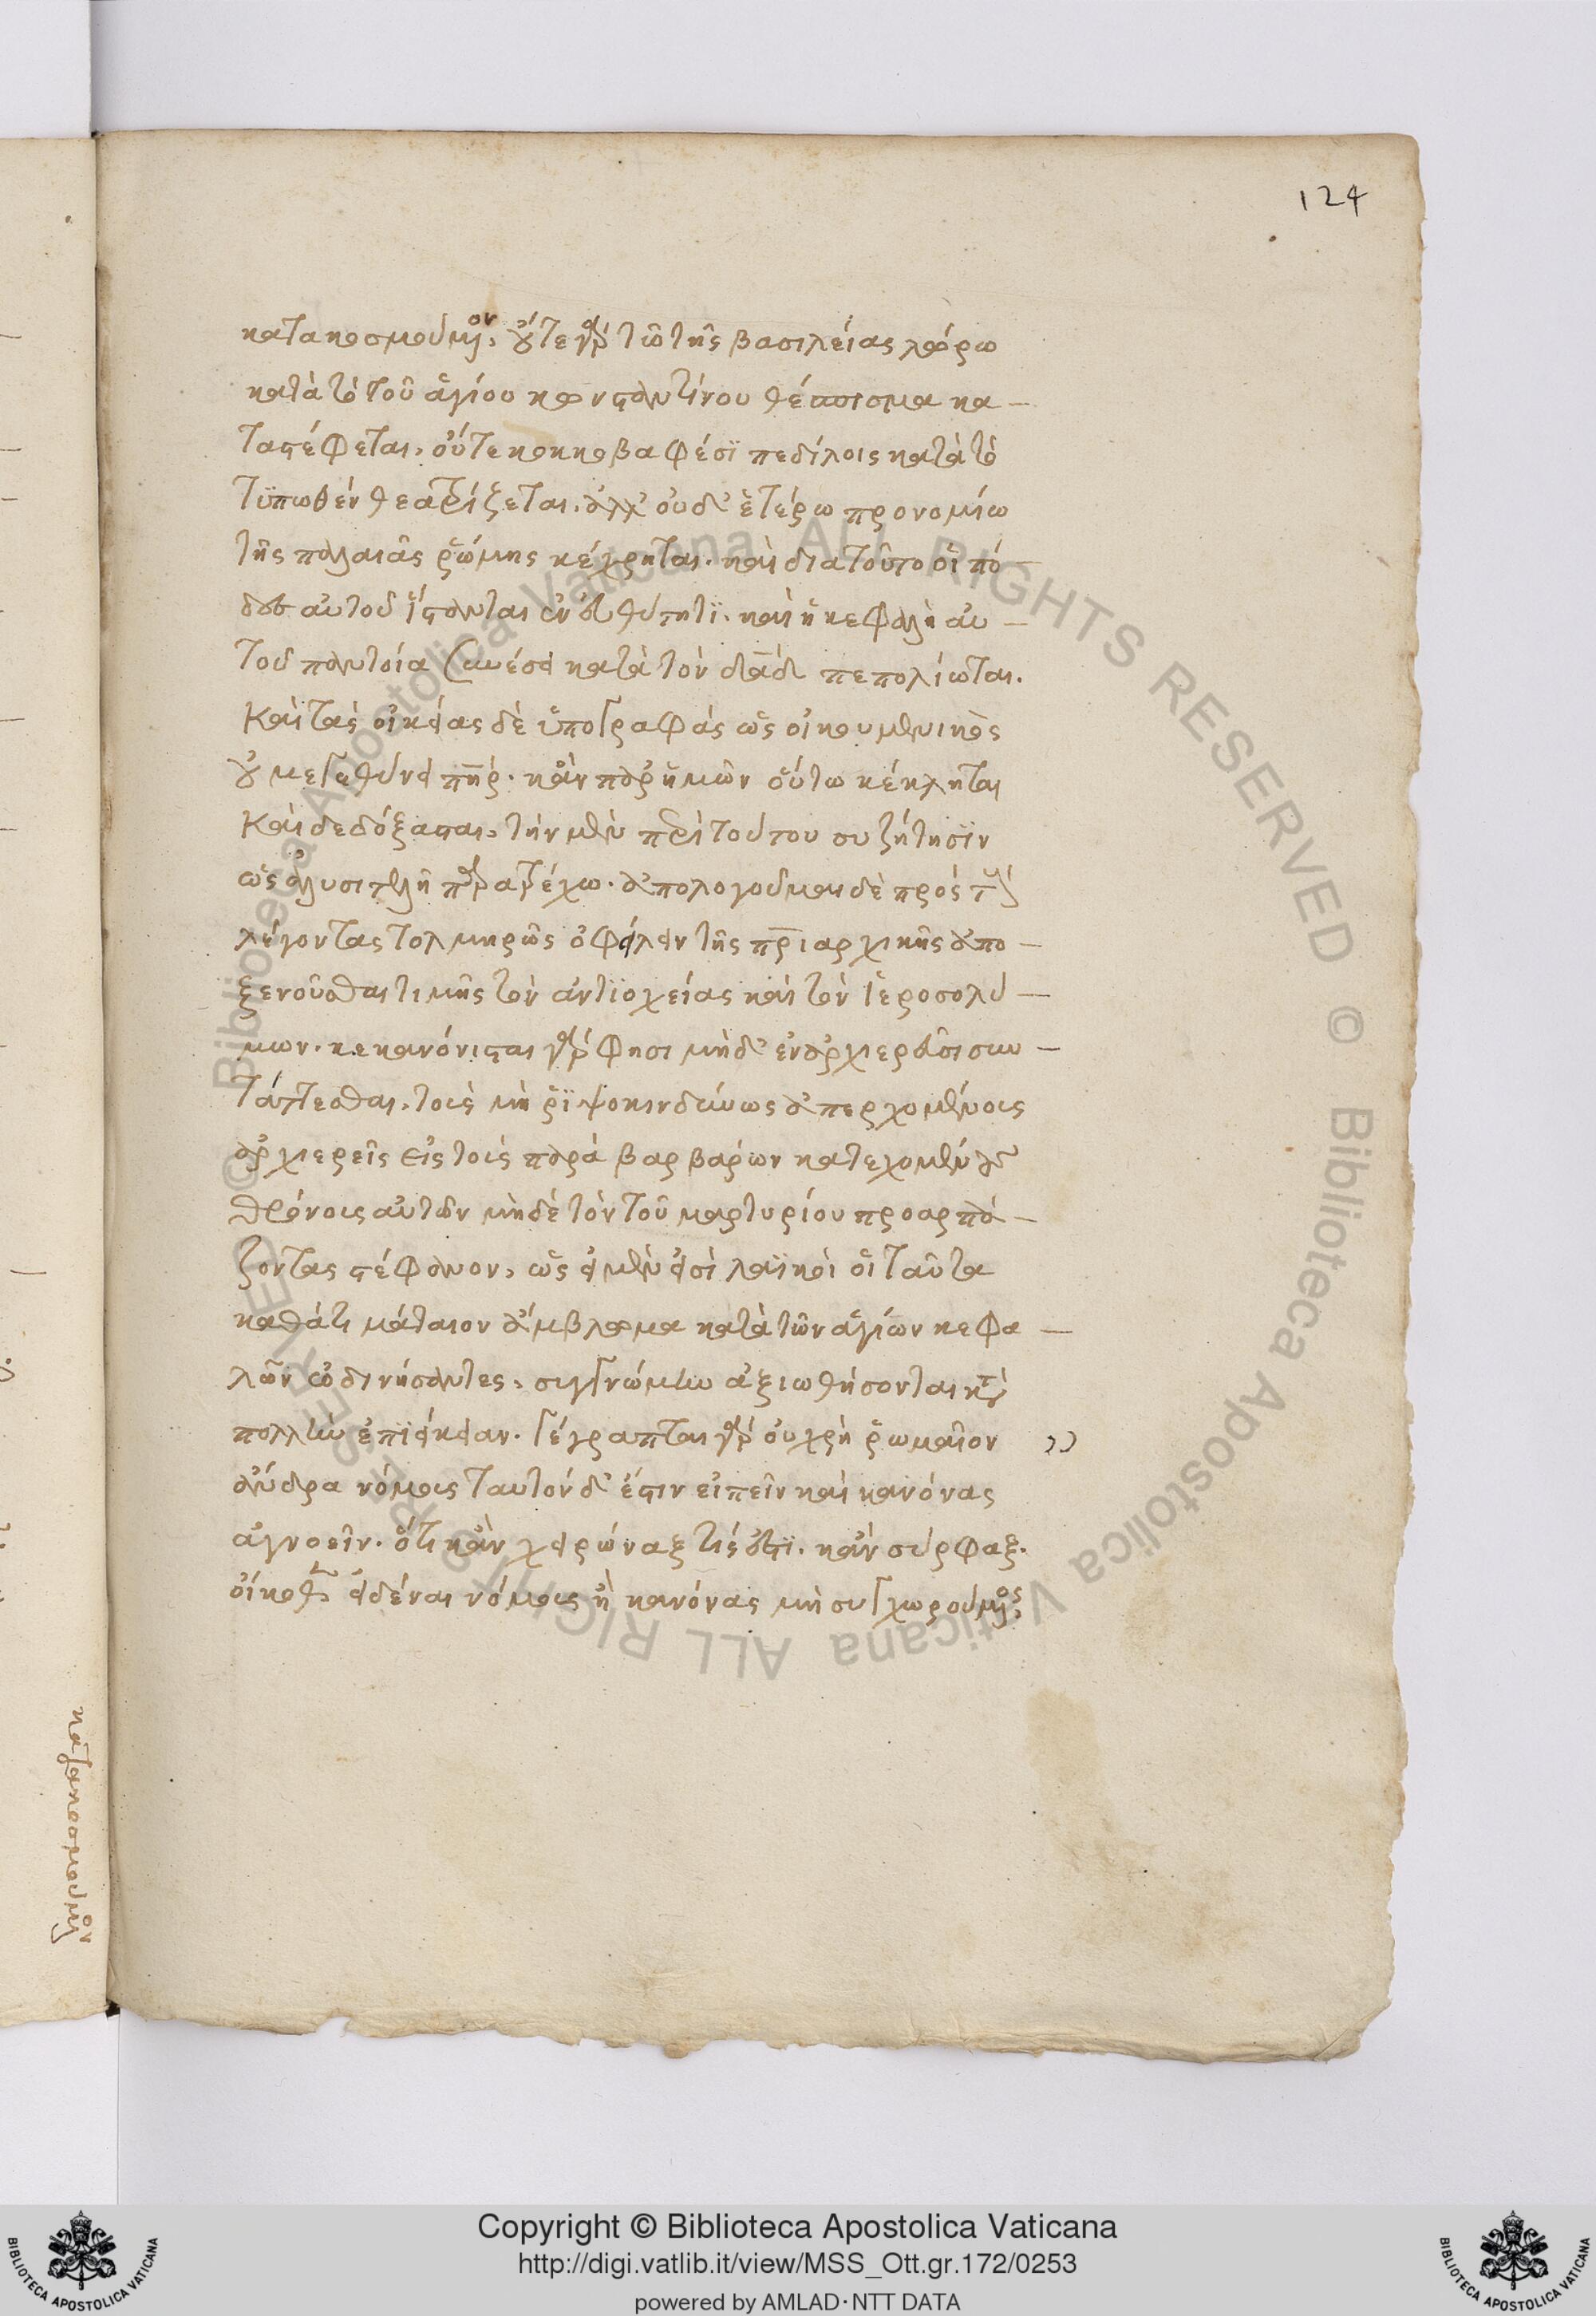 124
κατακοσμούμενον, οὔτε γὰρ τῶ τῆς βασιλείας λώρω
κατὰ τὸ τοῦ ἁγίου κωνσταντίνου θέσπισμα κα-
ταστέφεται, οὔτε κοκκοβαφέσϊ πεδίλοις κατὰ τὸ
τϋπωθὲν θεατρίζεται. ἀλλ' οὐδ' ἑτέρω προνομίω
τῆς παλαιᾶς ῥώμης κέχρηται. καὶ διατοῦτο οἱ πό-
δες αὐτοῦ ἵστανται ἐν εὐθύτητϊ. καὶ ἡ κεφαλὴ αὐ-
τοῦ παντοία συνέσει κατὰ τὸν δαδ πεπολίωται.
Καὶ τὰς οἰκείας δὲ ὑπογραφὰς ὡς οἰκουμενικὸς
οὐ μεγεθύνει πηρ. κἂν παρ' ἡμῶν οὕτω κέκληται
Καὶ δεδόξασται, τὴν μὲν περὶ τούτου συζήτησϊν
ὡς ἀλυσιτελῆ παρατρέχω. ἀπολογοῦμαι δὲ πρὸς τοὺς
λέγοντας τολμηρῶς ὀφείλειν τῆς πριαρχικῆς ἀπο-
ξενοῦσθαι τιμῆς τὸν ἀντϊοχείας καὶ τὸν ἱεροσολύ-
μων. κεκανόνισται γὰρ φησι μηδ' ἐν ἀρχιερεῦσι συν-
τάττεσθαι, τοὺς μὴ ῥϊψοκινδύνως ἀπερχομένους
ἀρχιερεῖς εἰς τοὺς παρὰ βαρβάρων κατεχομένους
θρόνους αὐτῶν μηδὲ τὸν τοῦ μαρτυρίου προαρπά-
ζοντας στέφανον, ὡς εἰ μὲν εἰσὶ λαϊκοὶ οἱ ταῦτα
καθάτι μάταιον ἀμβλωμα κατὰ τῶν ἁγίων κεφα-
λῶν ὠδινήσαντες, συγγνώμην ἀξιωθήσονται κατὰ
πολλὴν ἐπϊείκειαν. γέγραπται γὰρ οὐ χρὴ ῥωμαῖον
ἄνδρα νόμους ταυτὸν δ' ἔστιν εἰπεῖν καὶ κανόνας
ἀγνοεῖν. ὅτι κἂν χειρώναξ τίς ἐστϊ. κἂν σύρφαξ.
οἴκοθεν εἰδέναι νόμους ἢ κανόνας μὴ συγχωρούμενος,
κατακοσμούμενον
Copyright © Biblioteca Apostolica Vaticana
http://digi.vatlib.it/view/MSS_Ott.gr.172/0253
powered by AMLAD·NTT DATA
© Biblioteca Apostolica Vaticana ALL RIGHTS RESERVED © Biblioteca Apostolica Vaticana ALL RIGHTS RESERVED
BIBLIOTECA APOSTOLICA VATICANA
BIBLIOTECA APOSTOLICA VATICANA